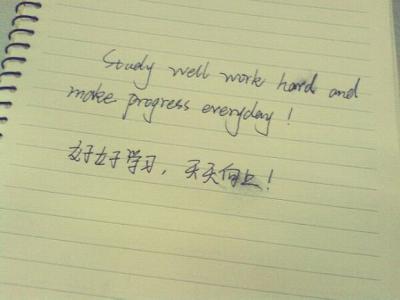 Study well work hard and
make progress everyday!
好好学习，天天向上！